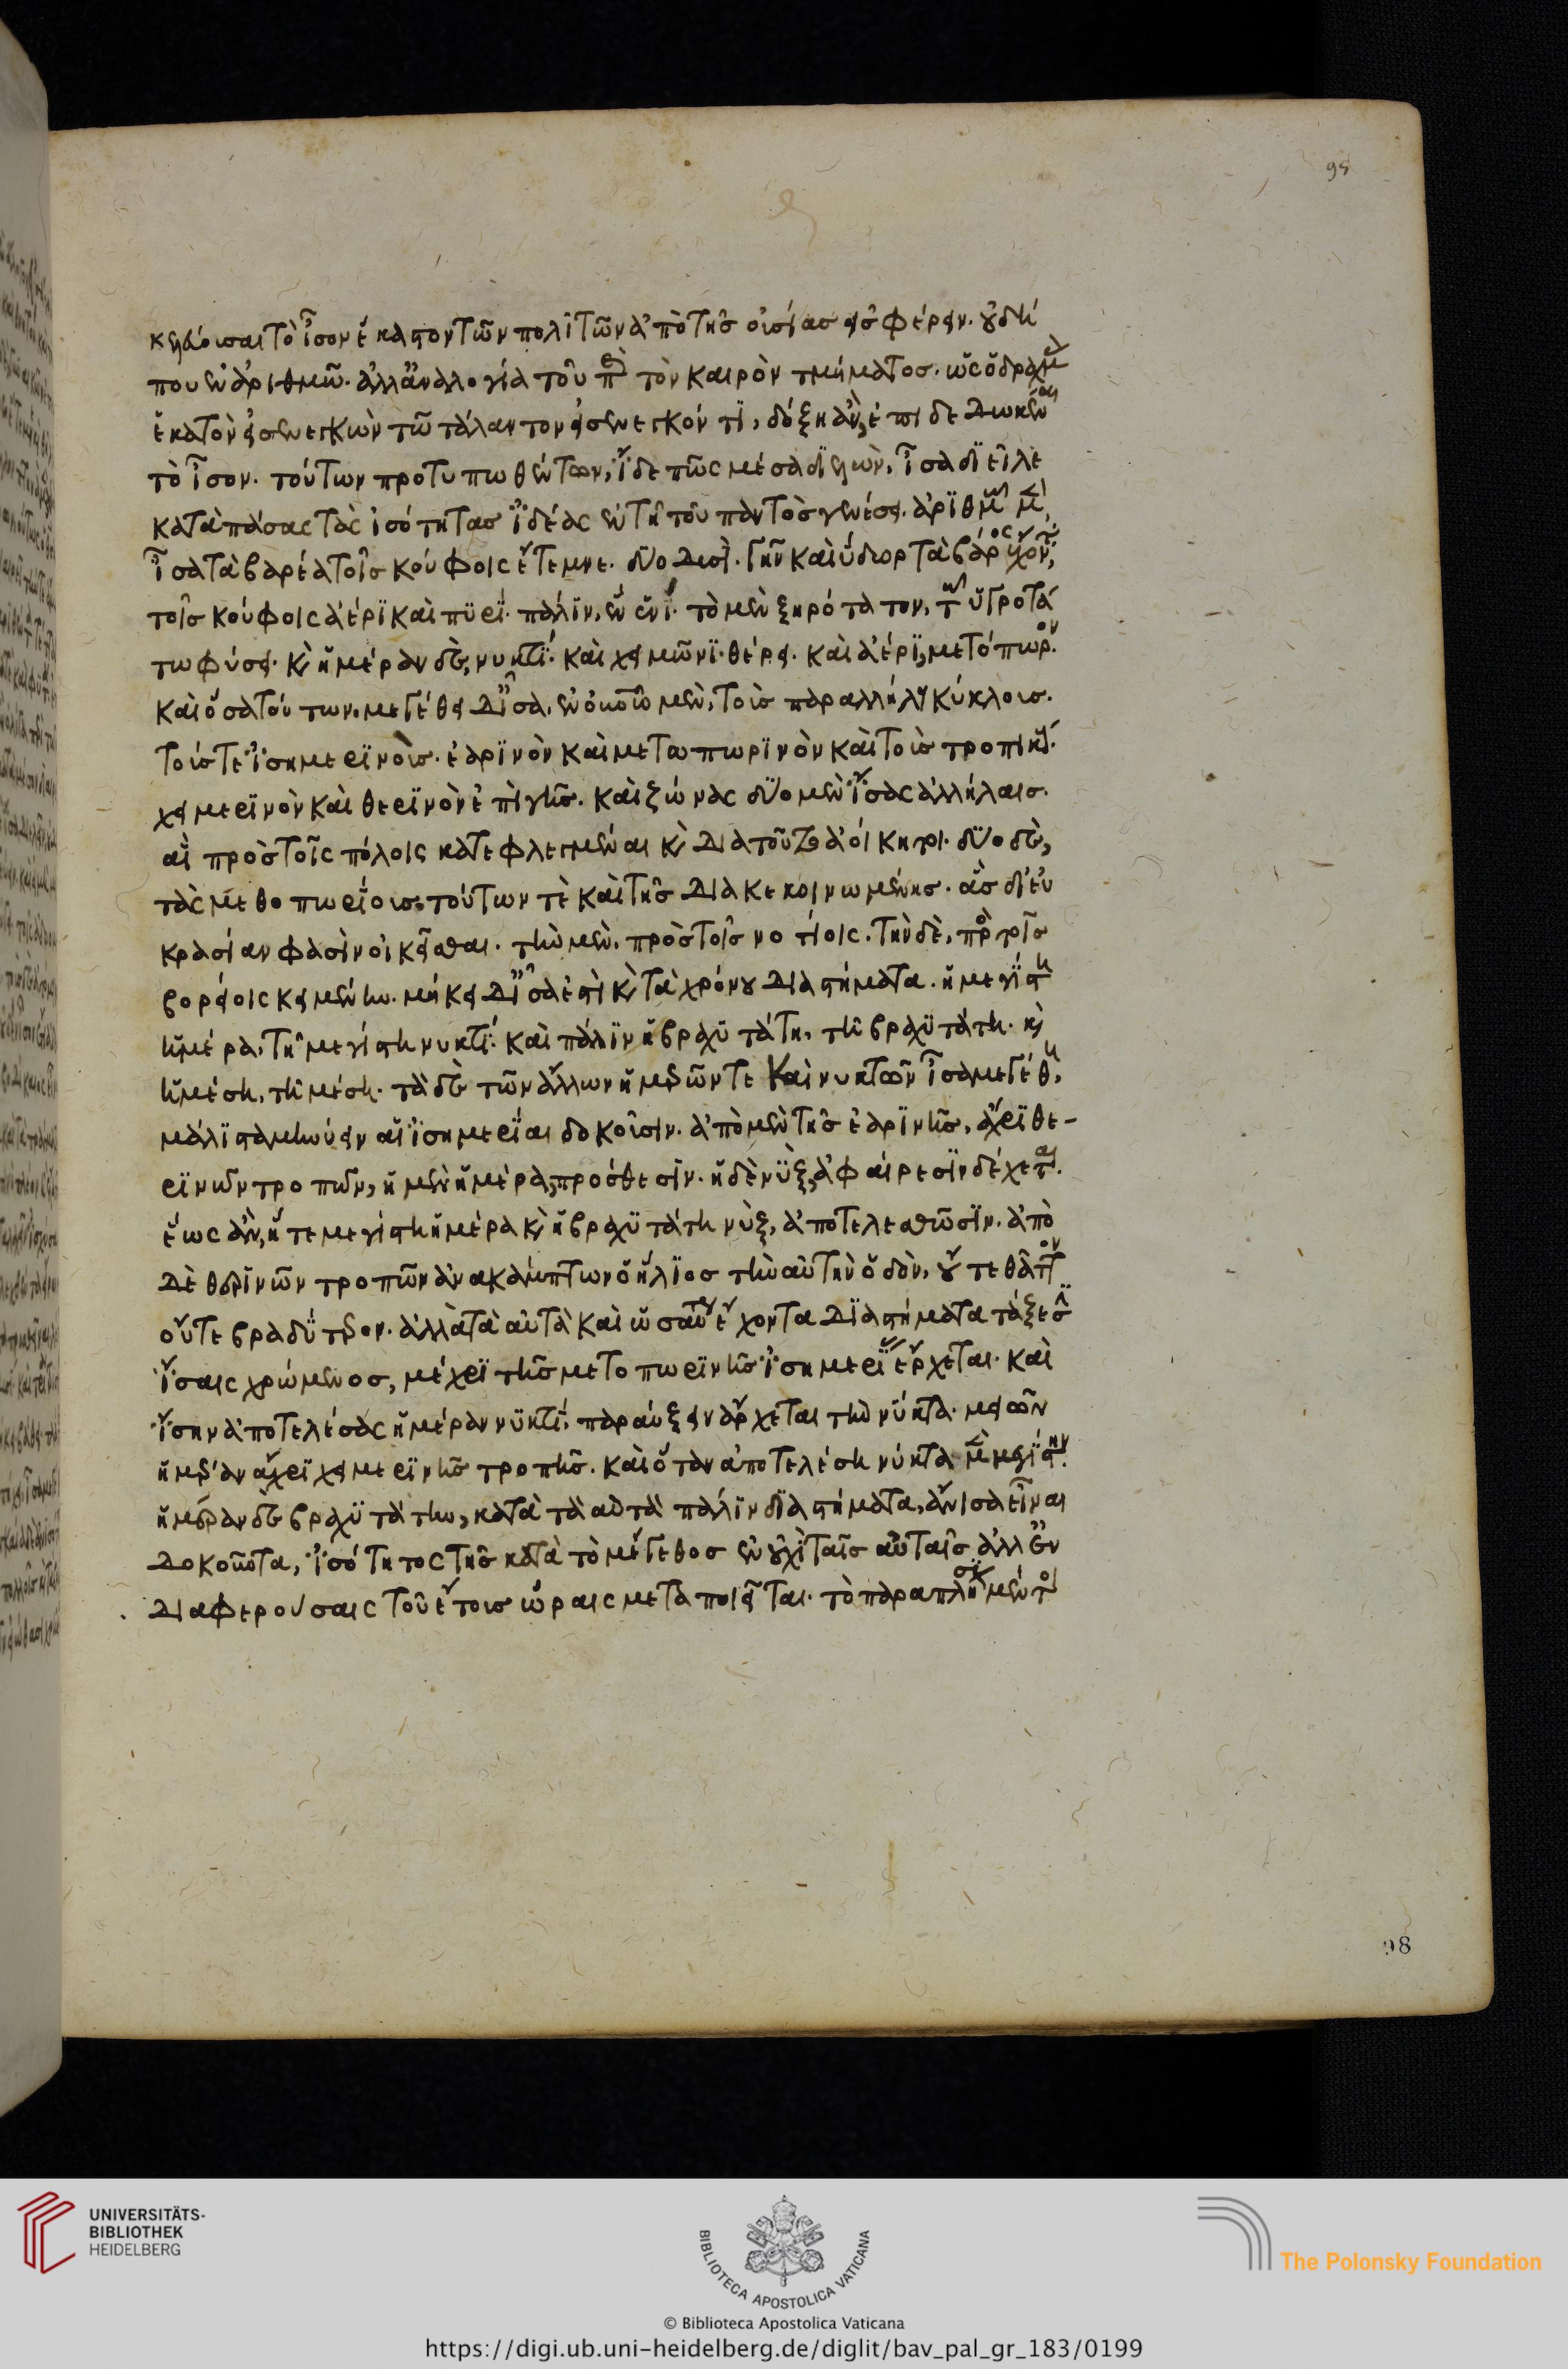 κελεύουσαι τὸ ἴσον ἕκαστον τῶν πολιτῶν ἀπὸ τῆς οὐσίας εἰσφέρειν. οὐ δή
που ἐν ἀριθμῶ. ἀλλ' ἀναλογία τοῦ περὶ τὸν καιρὸν τμήματος. ὡς ὁ δραχμὰ
ἑκατὸν εἰσενεγκὼν τῶ τάλαντον εἰσενεγκόντϊ, δόξη ἂν, ἐπιδεδωκέναι
τὸ ἴσον. τούτων προτυπωθέντων, ἴδε πῶς μέσα διελὼν, ἴσα διεῖλε
κατὰ πάσας τὰς ἰσότητας ἰδέας ἐν τῆ τοῦ παντὸς γενέσει. ἀρϊθμῶ μὲν
ἴσα τὰ βαρέα τοῖς κούφοις ἔτεμνε. δύο δυσὶ. γῆν καὶ ὕδωρ τὰ βάρος ἔχοντα,
τοῖς κούφοις ἀέρϊ καὶ πϋρί. πάλϊν, ἓν ἑνί. τὸ μὲν ξηρότατον, τῶ ὑγροτά
τω φύσει. καὶ ἡμέραν δὲ, νυκτί. καὶ χειμῶνϊ θέρει. καὶ ἀέρϊ, μετόπωρον.
καὶ ὅσα τούτων. μεγέθει δ' ἴσα, ἐν οὐρανῶ μὲν, τοὺς παραλλήλους κύκλους.
τούς τε ἰσημερϊνοὺς. ἐαρϊνὸν καὶ μετωπωρϊνὸν καὶ τοὺς τροπικούς.
χειμερϊνὸν καὶ θερϊνὸν ἐπὶ γῆς. καὶ ζώνας δύο μὲν ἴσας ἀλλήλαις.
αἳ πρὸς τοῖς πόλοις κατεφλεγμέναι καὶ διὰ τοῦτο ἀοίκητοι. δύο δὲ,
τὰς μεθοπωρίοις τούτων τὲ καὶ τῆς διακεκοινωμένης. ἃς δι' εὐ
κρασίαν φασὶν οἰκεῖσθαι. τὴν μὲν, πρὸς τοῖς νοτίοις. τὴν δὲ, πρὸς τοῖς
βορείοις κειμένην. μήκει δ' ἴσα ἐστὶ καὶ τὰ χρόνου διαστήματα. ἡ μεγίστη
ἡμέρα, τῆ μεγίστη νυκτί. καὶ πάλϊν ἡ βραχϋτάτη, τῆ βραχϋτάτη. καὶ
ἡ μέση, τῆ μέση. τὰ δὲ τῶν ἄλλων ἡμερῶν τε καὶ νυκτῶν ἴσα μεγέθη,
μάλϊστα μηνύειν αἱ ἰσημερίαι δοκοῦσιν. ἀπὸ μὲν τῆς ἐαρϊνῆς, ἄχρϊ θε-
ρϊνῶν τροπῶν, ἡ μὲν ἡμέρα, πρόσθεσϊν. ἡ δὲ νὺξ, ἀφαίρεσϊν δέχεται.
ἕως ἂν, ἥ τε μεγίστη ἡμέρα καὶ ἡ βραχϋτάτη νὺξ, ἀποτελεσθῶσϊν. ἀπὸ
δὲ θερϊνῶν τροπῶν ἀνακάμπτων ὁ ἥλϊος τὴν αὐτὴν ὁδὸν, οὔτε θᾶττον
οὔτε βραδύτερον. ἀλλὰ τὰ αὐτὰ καὶ ὡσαύτως ἔχοντα δϊαστήματα τάξεσϊ
ἴσαις χρώμενος, μέχρϊ τῆς μετοπωρϊνῆς ἰσημερίας ἔρχεται. καὶ
ἴσην ἀποτελέσας ἡμέραν νϋκτί, παραύξειν ἄρχεται τὴν νύκτα. μειῶν
ἡμέραν ἄχρϊ χειμερϊνῆς τροπῆς. καὶ ὅταν ἀποτελέση νύκτα μὲν μεγίστην.
ἡμέραν δὲ βραχϋτάτην, κατὰ τὰ αὐτὰ πάλϊν διαστήματα, ἄνισα εἶναι
δοκοῦντα, ἰσότητος τῆς κατὰ τὸ μέγεθος ἐν οὐχὶ ταῖς αὐταῖς ἀλλ' ἐν
διαφερούσαις τοῦ ἔτους ὥραις μεταποιεῖται. τὸ παραπλήσιον μέντοι
98
98
UNIVERSITÄTS-
BIBLIOTHEK
HEIDELBERG
BIBLIOTECA APOSTOLICA VATICANA
The Polonsky Foundation
© Biblioteca Apostolica Vaticana
https://digi.ub.uni-heidelberg.de/diglit/bav_pal_gr_183/0199